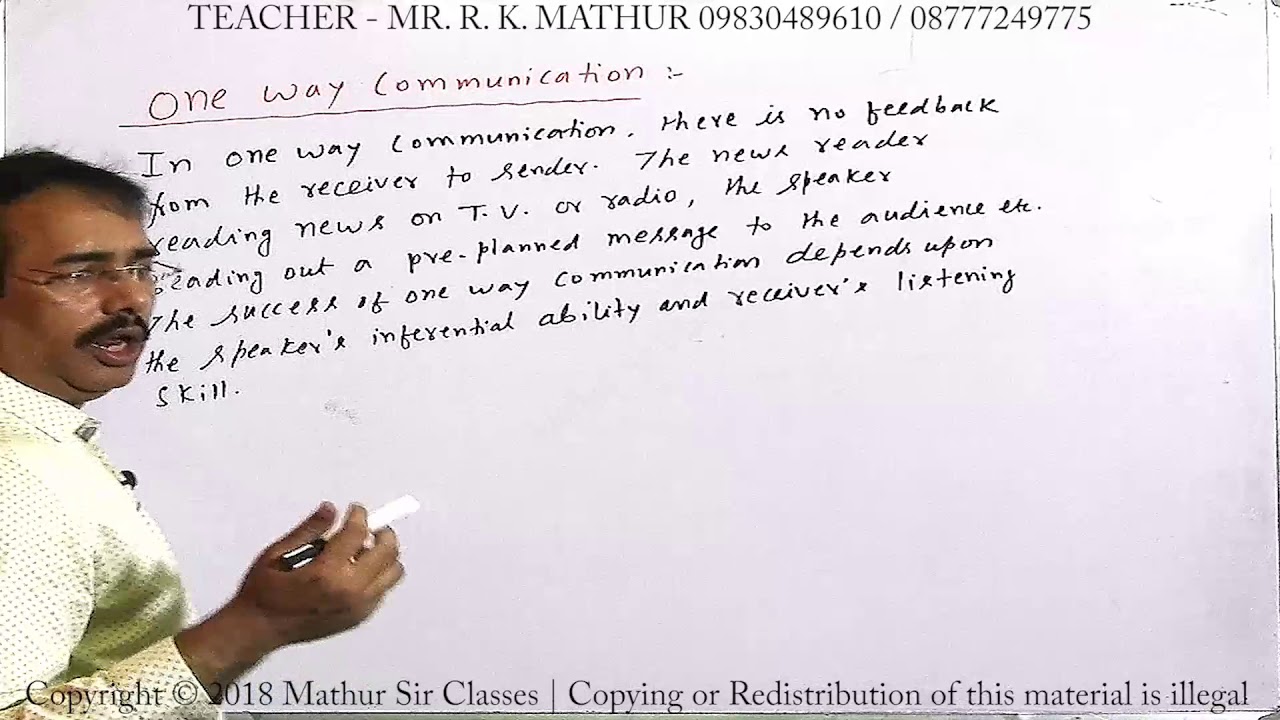 TEACHER - MR. R. K. MATHUR 09830489610 / 08777249775
One way Communication :-
In one way communication, there is no feedback
from the receiver to sender. The news reader
reading news on T.V. or radio, the speaker
reading out a pre-planned message to the audience etc.
The success of one way communication depends upon
the speaker's inferential ability and receiver's listening
skill.
Copyright © 2018 Mathur Sir Classes | Copying or Redistribution of this material is illegal